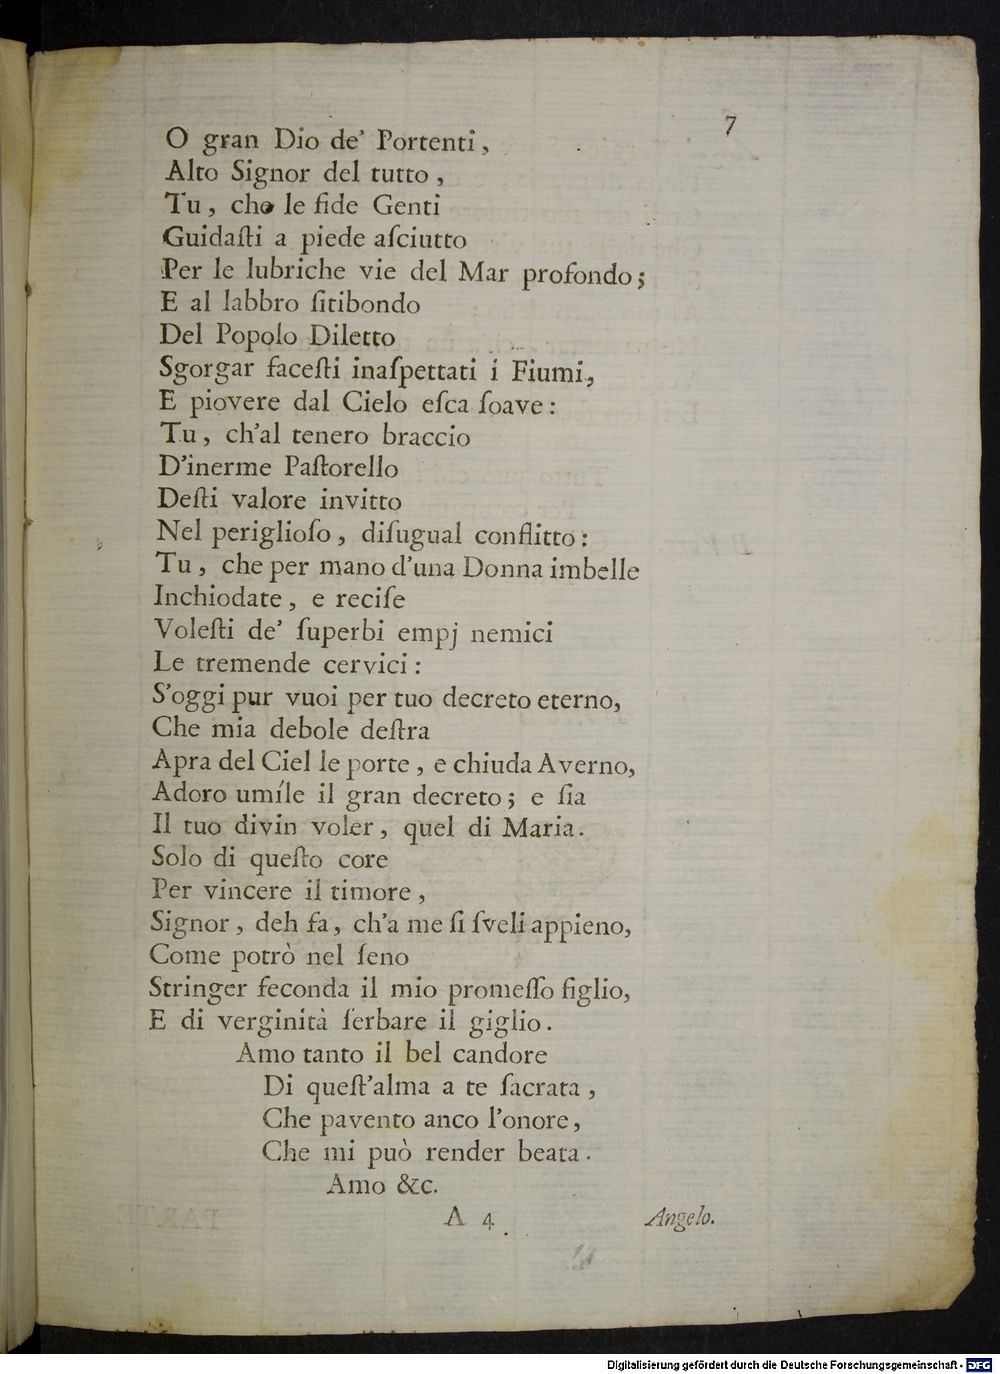 7
O gran Dio de' Portenti,
Alto Signor del tutto,
Tu, che le fide Genti
Guidaſti a piede aſciutto
Per le lubriche vie del Mar profondo;
E al labbro ſitibondo
Del Popolo Diletto
Sgorgar faceſti inaſpettati i Fiumi,
E piovere dal Cielo eſca ſoave:
Tu, ch'al tenero braccio
D'inerme Paſtorello
Deſti valore invitto
Nel periglioſo, diſugual conflitto:
Tu, che per mano d'una Donna imbelle
Inchiodate, e reciſe
Voleſti de' ſuperbi empj nemici
Le tremende cervici:
S'oggi pur vuoi per tuo decreto eterno,
Che mia debole deſtra
Apra del Ciel le porte, e chiuda Averno,
Adoro umíle il gran decreto; e ſia
Il tuo divin voler, quel di Maria.
Solo di queſto core
Per vincere il timore,
Signor, deh fa, ch'a me ſi ſveli appieno,
Come potrò nel ſeno
Stringer feconda il mio promeſſo figlio,
E di verginità ſerbare il giglio.
Amo tanto il bel candore
Di queſt'alma a te ſacrata,
Che pavento anco l'onore,
Che mi può render beata.
Amo &c.
A 4
Angelo.
Digitalisierung gefördert durch die Deutsche Forschungsgemeinschaft - DFG